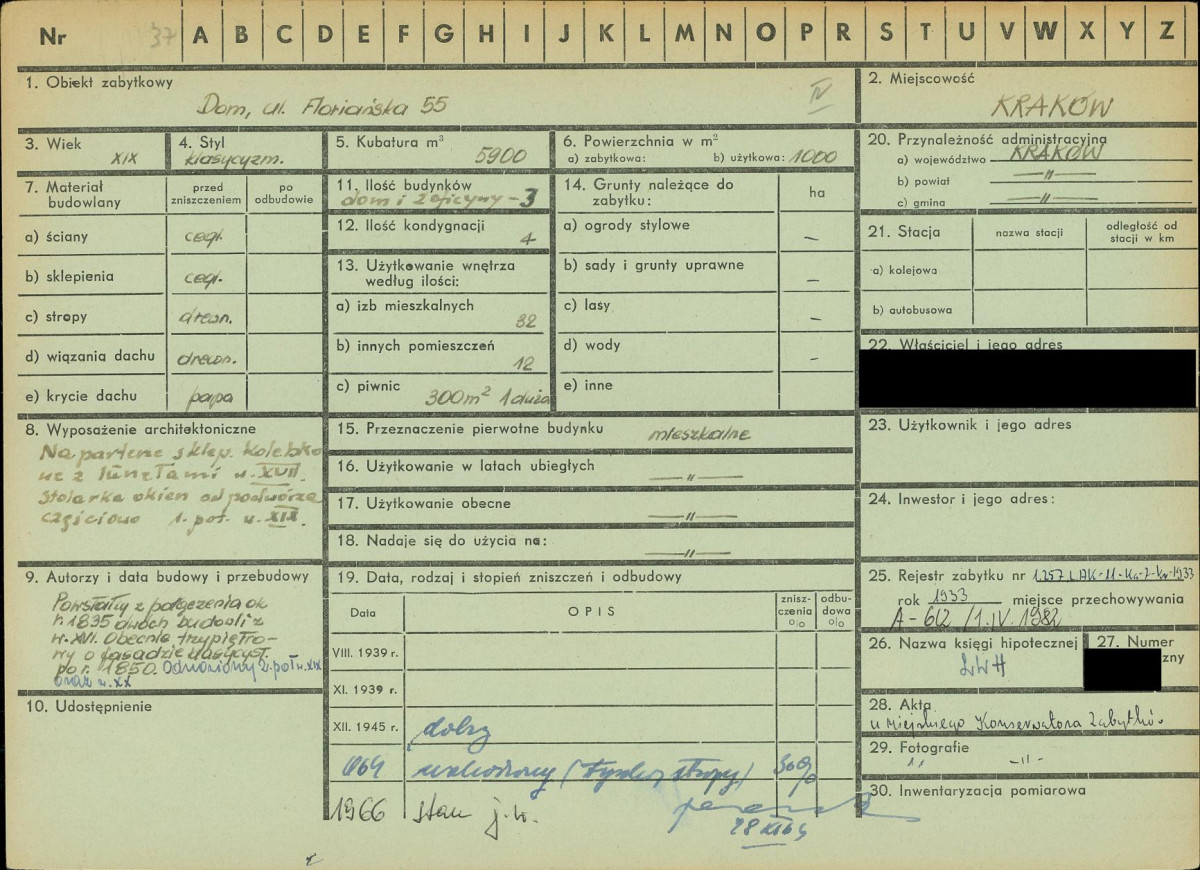 Nr 37 A B C D E F G H I J K L M N O P R S T U V W X Y Z
1. Obiekt zabytkowy
Dom, ul. Floriańska 55
IV
2. Miejscowość
KRAKÓW
3. Wiek
XIX
4. Styl
klasycyzm.
5. Kubatura m³
5900
6. Powierzchnia w m²
a) zabytkowa: b) użytkowa: 1000
7. Materiał budowlany
przed zniszczeniem
po odbudowie
a) ściany cegł.
b) sklepienia cegł.
c) stropy drewn.
d) wiązania dachu drewn.
e) krycie dachu papa
8. Wyposażenie architektoniczne
Na parterze sklep. kolebko
we z lunetami w. XVII.
Stolarka okien od podwórza
częściowo 1. poł. w. XIX.
9. Autorzy i data budowy i przebudowy
Powstały z połączenia ok
r. 1835 dwóch budowli z
w. XVI. Obecnie trzypiętro-
wy o fasadzie klasycyst.
po r. 1850. Odnowiony 2. poł w. XIX
oraz w. XX
10. Udostępnienie
11. Ilość budynków
dom i 2 oficyny - 3
12. Ilość kondygnacji
4
13. Użytkowanie wnętrza
według ilości:
a) izb mieszkalnych
32
b) innych pomieszczeń
12
c) piwnic
300m² 1 duża
14. Grunty należące do
zabytku:
ha
a) ogrody stylowe –
b) sady i grunty uprawne –
c) lasy –
d) wody –
e) inne
15. Przeznaczenie pierwotne budynku mieszkalne
16. Użytkowanie w latach ubiegłych —"—
17. Użytkowanie obecne —"—
18. Nadaje się do użycia na: —"—
19. Data, rodzaj i stopień zniszczeń i odbudowy
Data
OPIS
znisz-
czenia
o/o
odbu-
dowa
o/o
VIII. 1939 r.
XI. 1939 r.
XII. 1945 r. dobry
1964 uszkodzony (tynki, stropy) 30%
28 XI 64
1966 stan j.w.
20. Przynależność administracyjna
a) województwo KRAKÓW
b) powiat —"—
c) gmina —"—
21. Stacja
nazwa stacji
odległość od
stacji w km
a) kolejowa
b) autobusowa
22. Właściciel i jego adres
23. Użytkownik i jego adres
24. Inwestor i jego adres:
25. Rejestr zabytku nr
rok 1933 miejsce przechowywania
A-612 /1.IV.1982
26. Nazwa księgi hipotecznej
LWH
27. Numer
zny
28. Akta
u Miejskiego Konserwatora Zabytków
29. Fotografie
—"—
30. Inwentaryzacja pomiarowa